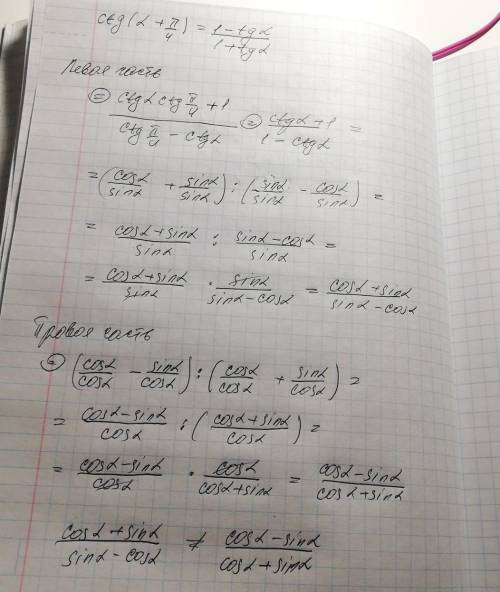 ctg(α + π/4) = (1 - tgα)/(1 + tgα)
Левая часть
= (ctgα ctg π/4 + 1)/(ctg π/4 - ctgα) = (ctgα + 1)/(1 - ctgα) =
= (cosα/sinα + sinα/sinα) : (sinα/sinα - cosα/sinα) =
= (cosα + sinα)/sinα : (sinα - cosα)/sinα =
= (cosα + sinα)/sinα · sinα/(sinα - cosα) = (cosα + sinα)/(sinα - cosα)
Провая часть
= (cosα/cosα - sinα/cosα) : (cosα/cosα + sinα/cosα) =
= (cosα - sinα)/cosα : ((cosα + sinα)/cosα) =
= (cosα - sinα)/cosα · cosα/(cosα + sinα) = (cosα - sinα)/(cosα + sinα)
(cosα + sinα)/(sinα - cosα) ≠ (cosα - sinα)/(cosα + sinα)